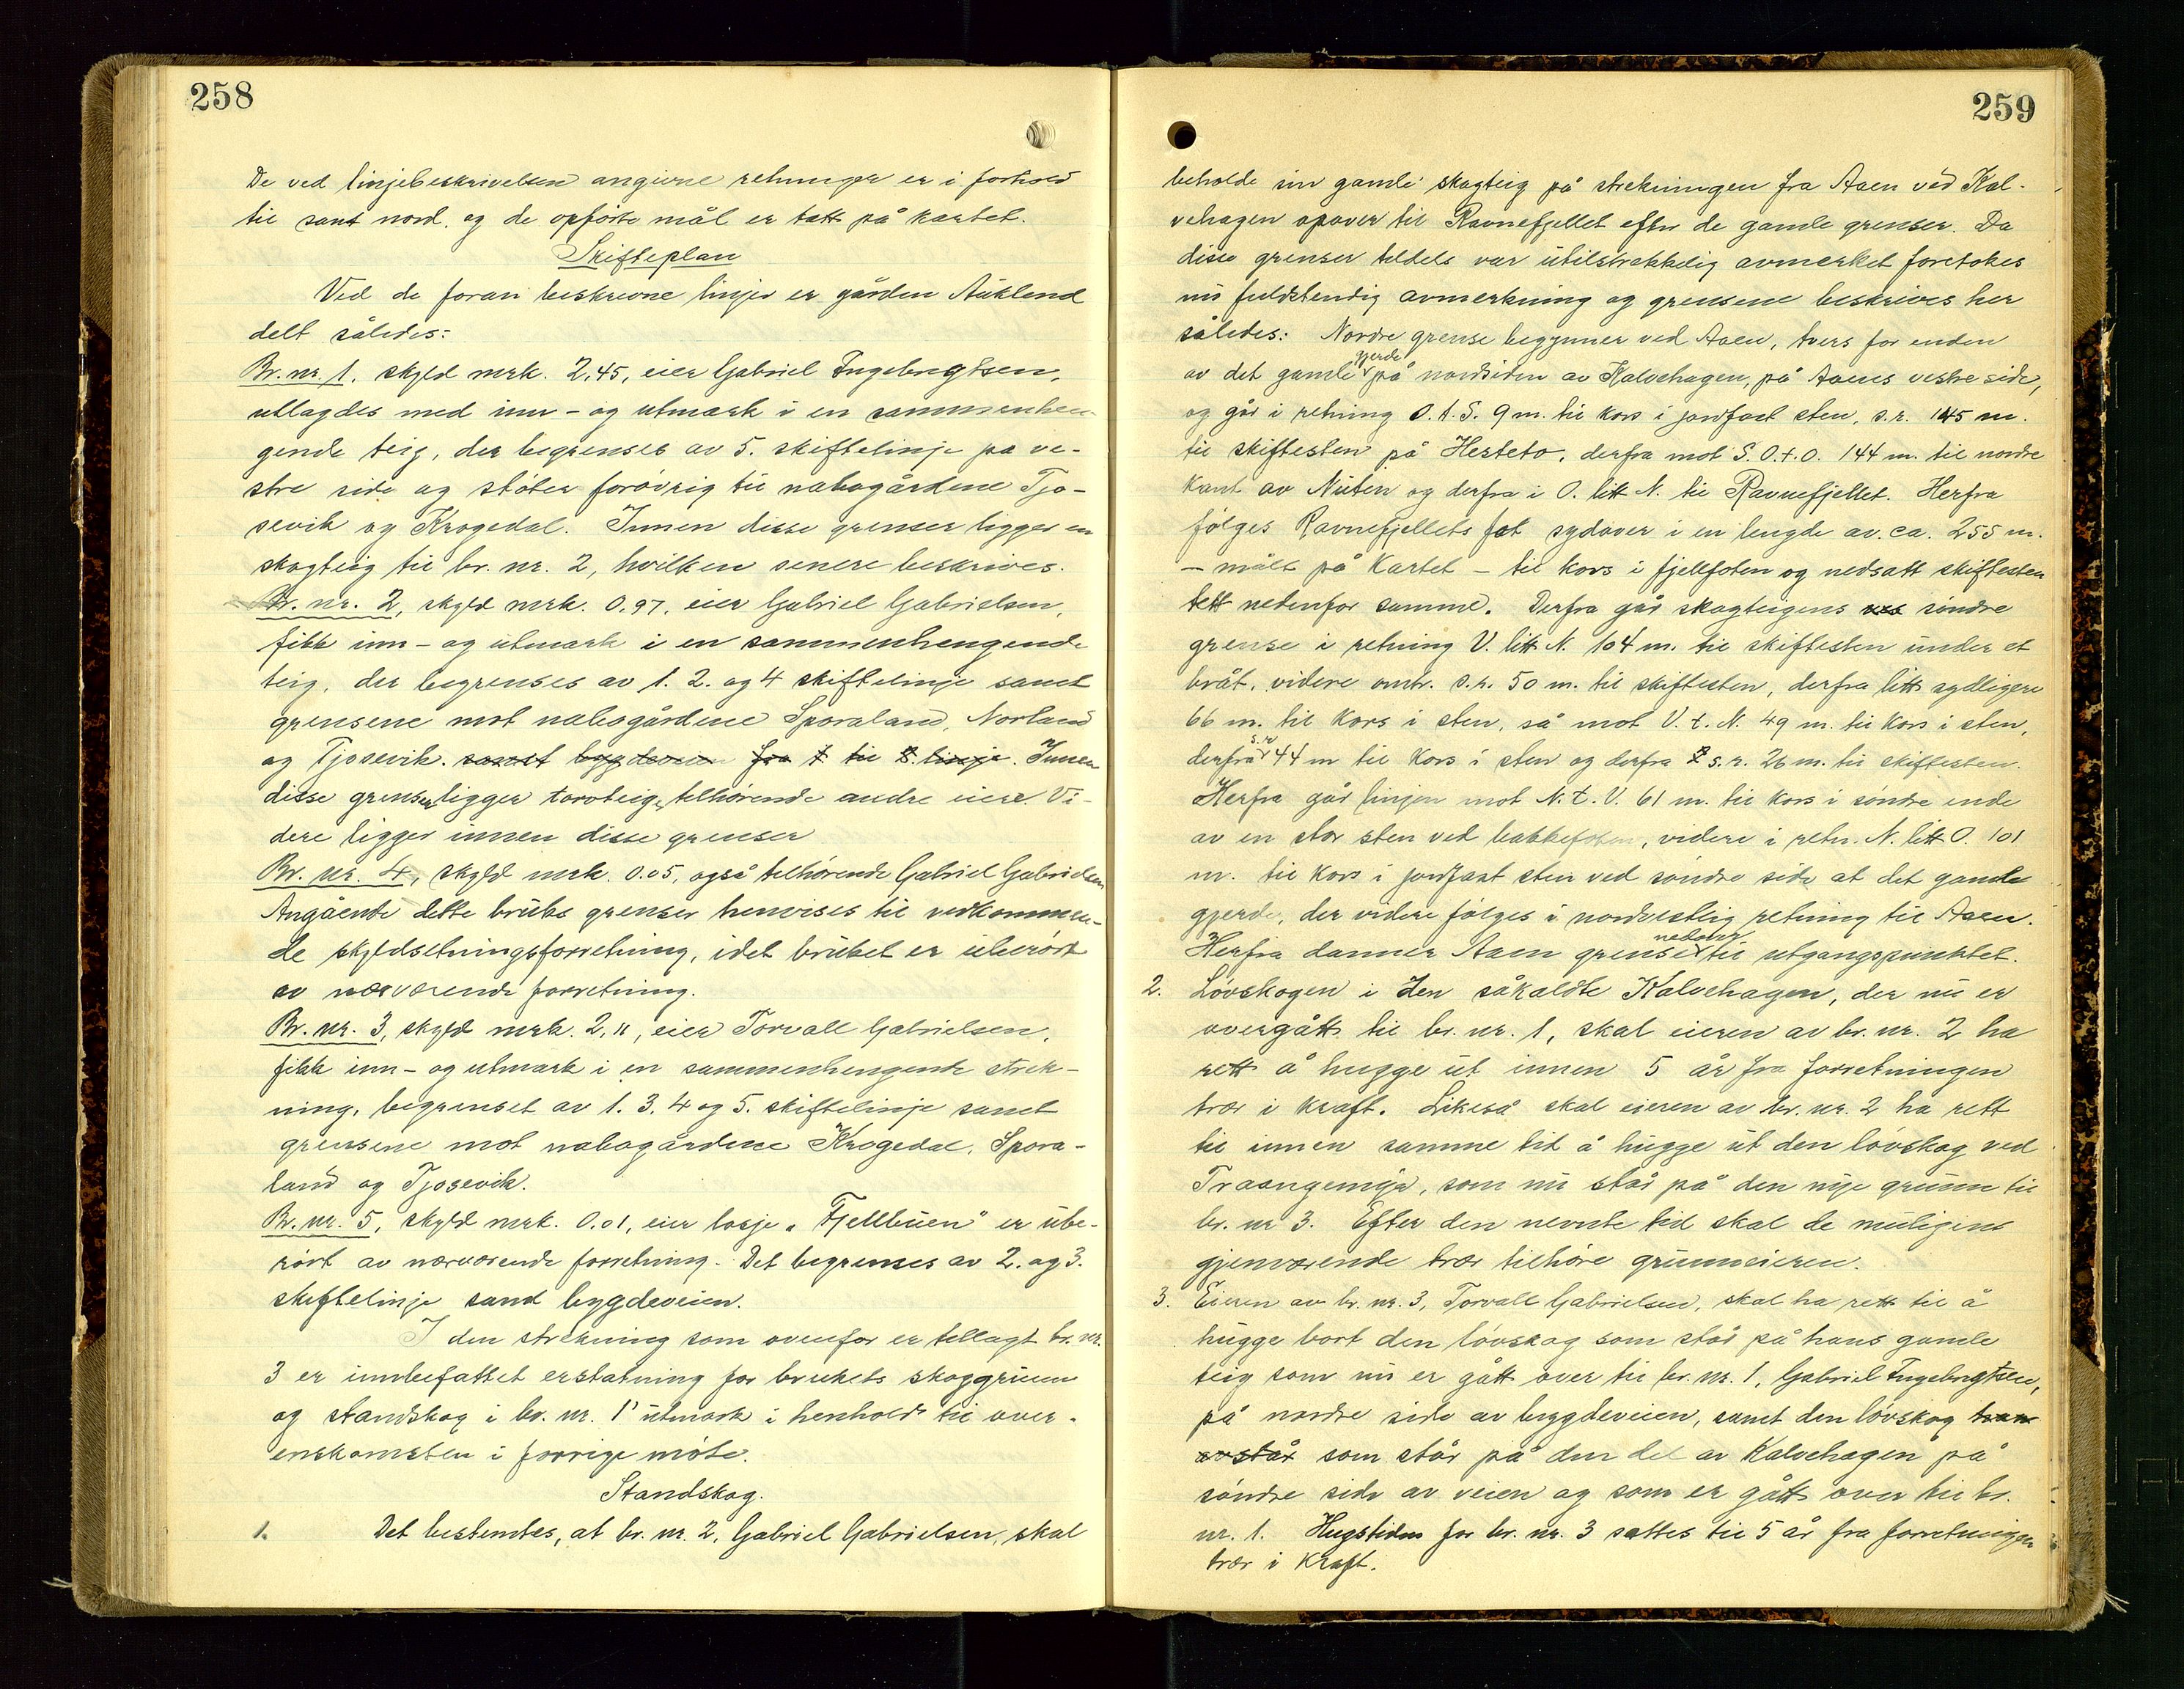 258
De ved linjebeskrivelsen angivne retninger er i forhold
til sant nord, og de opförte mål er tatt på kartet.
Skifteplan
Ved de foran beskrevne linjer er gården Aukland
delt således:
Br. nr. 1, skyld mrk. 2,45, eier Gabriel Ingebregtsen,
utlagdes med inn- og utmark i en sammenhen-
gende teig, der begrenses av 5. skiftelinje pa ve-
stre side og stöter forövrig til nabogårdene Tjo-
sevik og Krogedal. Innen disse grenser ligger en
skogteig til br. nr. 2, hvilken senere beskrives.
Br. nr. 2, skyld mrk. 0,97, eier Gabriel Gabrielsen,
fikk inn- og utmark i en sammenhengende
teig, der begrenses av 1. 2. og 4 skiftelinje samt
grensene mot nabogårdene Sporaland, Norland
og Tjosevik. samt bygdeveien fra 1 til 2. linje. Innen
disse grenser ligger torvteiger tilhörende andre eiere. Vi-
dere ligger innen disse grenser
Br. nr. 4, skyld mrk. 0.05, også tilhörende Gabriel Gabrielsen
Angående dette bruks grenser henvises til vedkommen-
de skyldsetningsforretning, idet bruket er uberört
av nærværende forretning.
Br. nr. 3, skyld mrk. 2,11, eier Torvall Gabrielsen,
fikk inn- og utmark i en sammenhengende strek-
ning, begrenset av 1. 3. 4 og 5. skiftelinje samt
grensene mot nabogårdene Krogedal, Spora-
land og Tjosevik.
Br. nr. 5, skyld mrk. 0.01, eier losje „Fjellbuen" er ube-
rört av nærværende forretning. Det begrenses av 2. og 3.
skiftelinje samt bygdeveien.
I den strekning som ovenfor er tillagt br. nr.
3 er innbefattet erstatning for brukets skoggrunn
og standskog i br. nr. 1's utmark i henhold til over-
enskomsten i forrige möte.
Standskog.
1. Det bestemtes, at br. nr. 2, Gabriel Gabrielsen, skal
259
beholde sin gamle skogteig på strekningen fra Aaen ved Kal-
vehagen opover til Ravnefjellet efter de gamle grenser. Da
disse grenser tildels var utilstrekkelig avmerket foretokes
nu fuldstendig avmerkning og grensene beskrives her
således: Nordre grense begynner ved Aaen, tvers for enden
av det gamle gjerde på nordsiden av Kalvehagen, på Aaens vestre side,
og går i retning O. t. S. 9 m. til kors i jordfast sten, s.r. 145 m.
til skiftesten på Hesteto, derfra mot S. O. t. O. 144 m. til nordre
kant av Nuten og derfra i O. litt N. til Ravnefjellet. Herfra
fölges Ravnefjellets fot sydover i en lengde av ca. 255 m.
- målt på kartet - til kors i fjellfoten og nedsatt skiftesten
tett nedenfor samme. Derfra går skogteigens ves söndre
grense i retning V. litt N. 104 m. til skiftesten under et
bråt, videre omtr. s.r. 50 m. til skiftesten, derfra litt sydligere
66 m. til kors i sten, så mot V. t. N. 49 m. til kors i sten,
derfra s.r. 44 m til kors i sten og derfra s.r. 26 m. til skiftesten.
Herfra går linjen mot N. t. V. 61 m. til kors i söndre ende
av en stor sten ved bakkefoten, videre i retn. N. litt O. 101
m. til kors i jordfast sten ved söndre side at det gamle
gjerde, der videre fölges i nordvestlig retning til Aaen.
Herfra danner Aaen grense nedover til utgangspunktet.
2. Lövskogen i den såkaldte Kalvehagen, der nu er
overgått til br. nr. 1, skal eieren av br. nr. 2 ha
rett å hugge ut innen 5 år fra forretningen
trær i kraft. Likeså skal eieren av br. nr. 2 ha rett
til innen samme tid å hugge ut den lövskog ved
Traangemyr, som nu står på den nye grunn til
br. nr 3. Efter den nevnte tid skal de muligens
gjenværende trær tilhöre grunneieren.
3. Eieren av br. nr. 3, Torvall Gabrielsen, skal ha rett til å
hugge bort den lövskog som står på hans gamle
teig som nu er gått over til br. nr. 1, Gabriel Ingebregtsen,
på nordre side av bygdeveien, samt den lövskog han
avstår som står på den del av Kalvehagen på
söndre side av veien og som er gått over til br.
nr. 1. Hugstiden for br. nr. 3 settes til 5 år fra forretningen
trær i kraft.